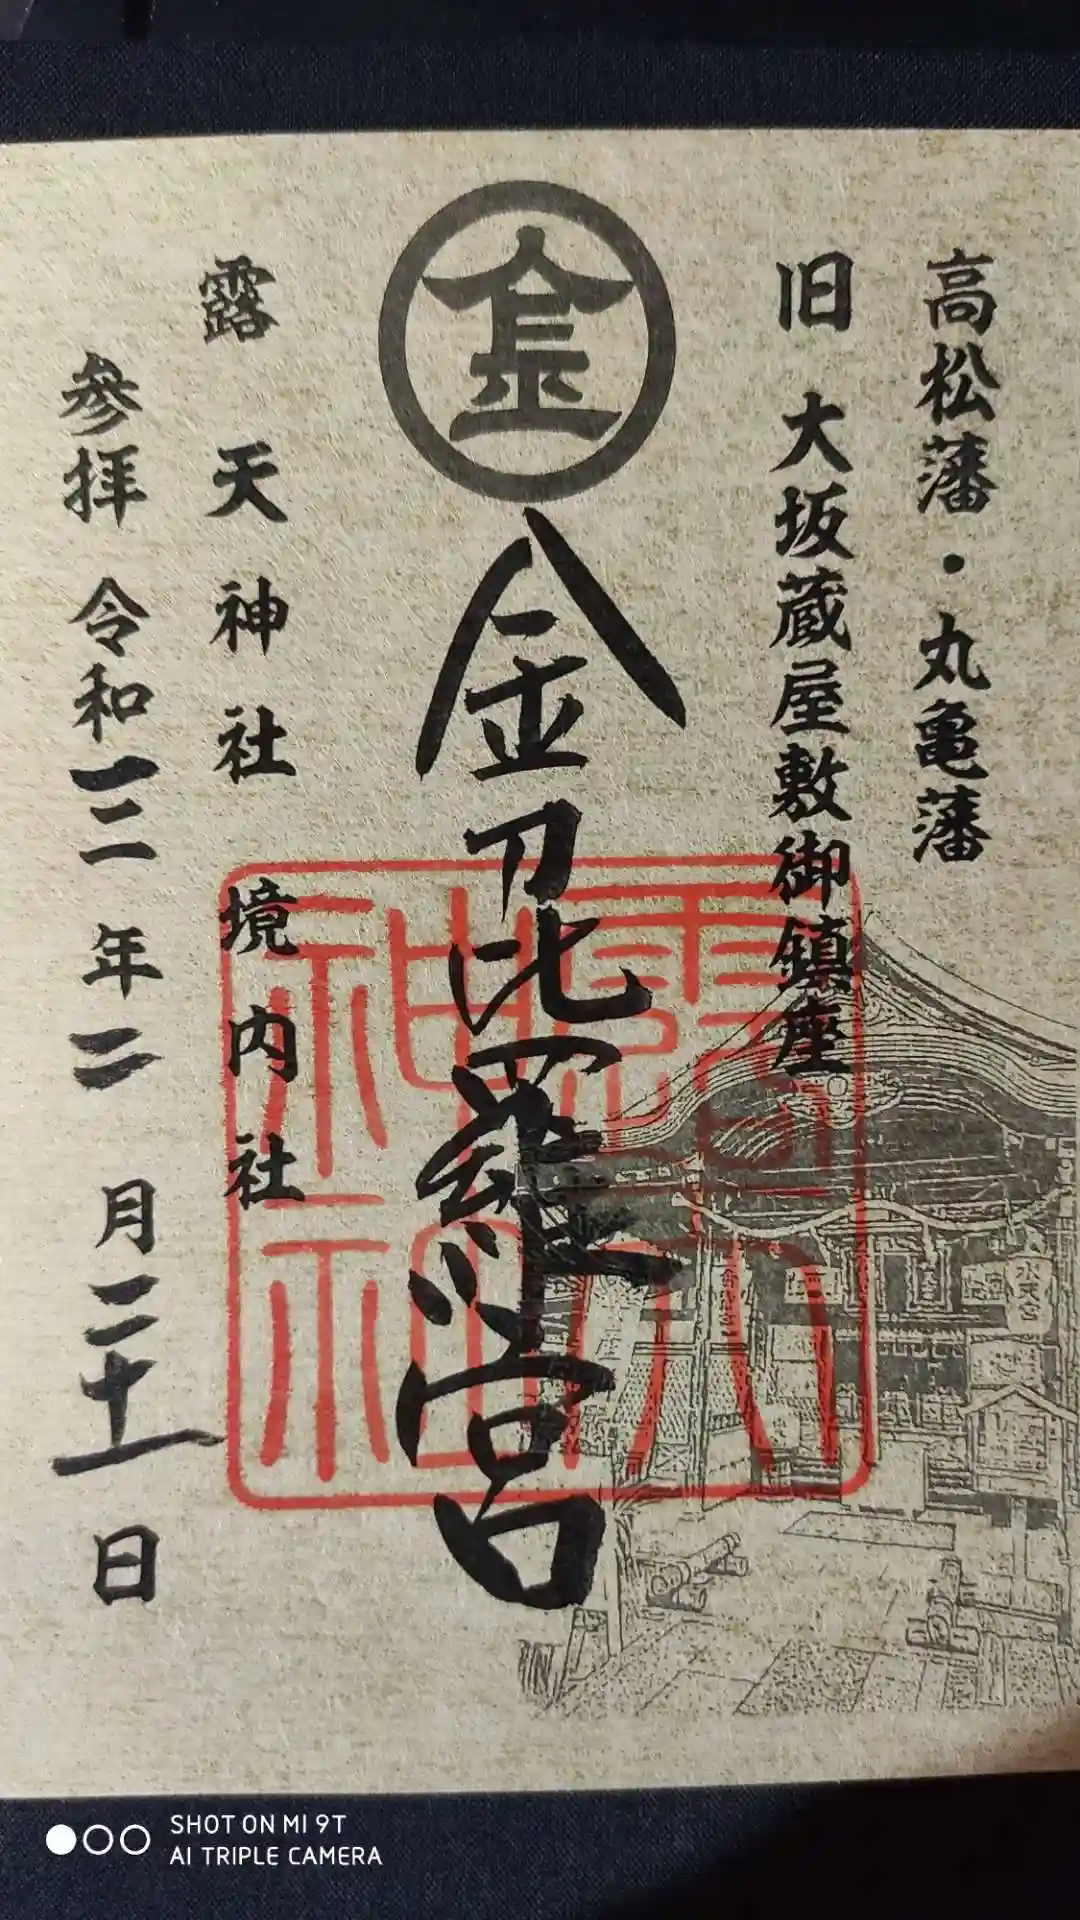 高松藩・丸亀藩
旧 大坂蔵屋敷御鎮座
金
金刀比羅宮
露天神社 境内社
参拝 令和三年二月二十一日
露天神社
水天宮
SHOT ON MI 9T
AI TRIPLE CAMERA